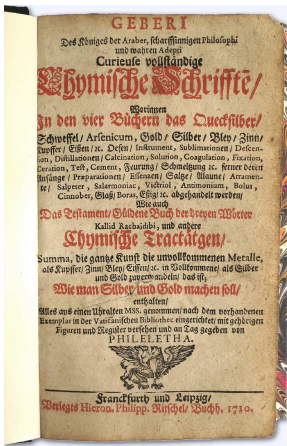 GEBERI
Des Königes der Araber, scharffsinnigen Philosophi
und wahren Adepti
Curieuse vollständige
Chymische Schrifften/
Worinnen
In den vier Büchern das Quecksilber/
Schweffel/ Arsenicum, Gold/ Silber/ Bley/ Zinn/
Kupffer/ Eißen/ ꝛc. Desen/ Instrument, Sublimationen/ Descen-
sion, Distillationen/ Calcination, Solution, Coagulation, Fixation,
Ceration, Test, Cement, Feurung/ Schmeltzung ꝛc. ferner derer
Anfänge/ Præparationen/ Essenzen/ Saltze/ Alaune/ Atramen-
te/ Salpeter/ Salarmoniac, Victriol, Antimonium, Bolus,
Cinnober, Glaß/ Boras, Eßig/ ꝛc. abgehandelt werden/
Wie auch
Das Testament/ Güldene Buch der dreyen Wörter
Kallid Rachaidibi, und andere
Chymische Tractätgen/
Summa, die gantze Kunst die unvollkommenen Metalle,
als Kupffer/ Zinn/ Bley/ Eissen/ ꝛc. in Vollkommene, als Silber
und Gold zuverwandeln/ das ist,
Wie man Silber und Gold machen soll/
enthalten/
Alles aus einen Uhralten MSS. genommen/ nach dem vorhandenen
Exemplar in der Vaticanischen Bibliothec eingerichtet/ mit gehörigen
Figuren und Register versehen und an Tag gegeben von
PHILELETHA.
Franckfurth und Leipzig/
Verlegts Hieron. Philipp. Ritschel/ Buchh. 1710.